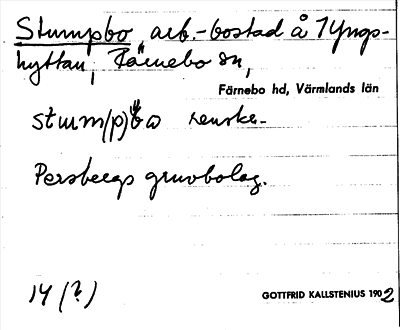 Stumpbo arb.-bostad å Yngs-
hyttan, Färnebo sn,
Färnebo hd, Värmlands län
stum(p)bo
Persbergs gruvbolag.
14 (?)
GOTTFRID KALLSTENIUS 1902